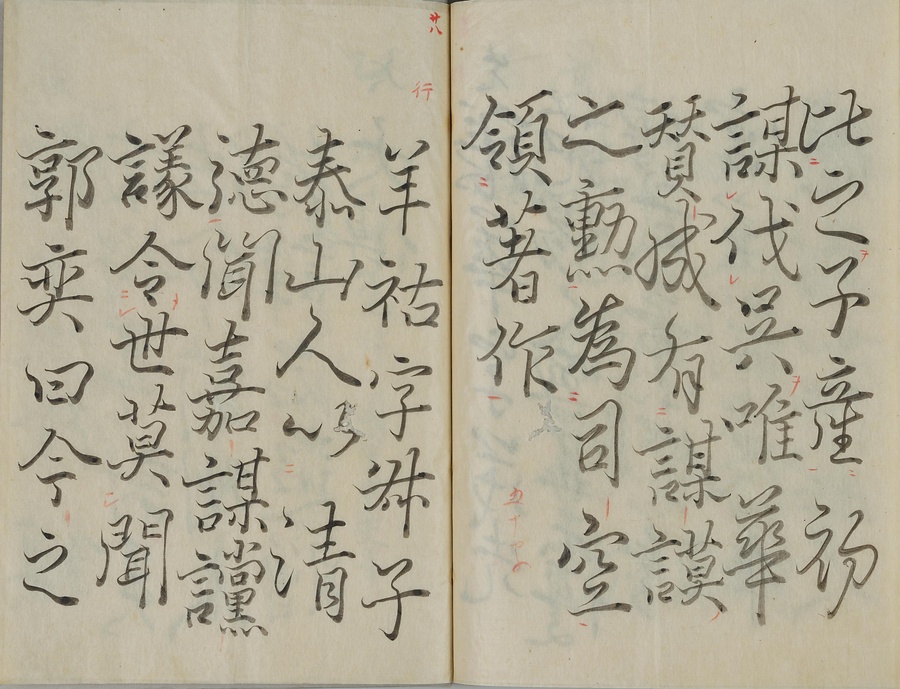 此之子産初
謀伐呉唯華
賛成有謀謨
之勳為司空
領著作
廿八
行
羊祜字叔子
泰山人以清
徳聞嘉謀讜
議令世莫聞
郭奕曰今之